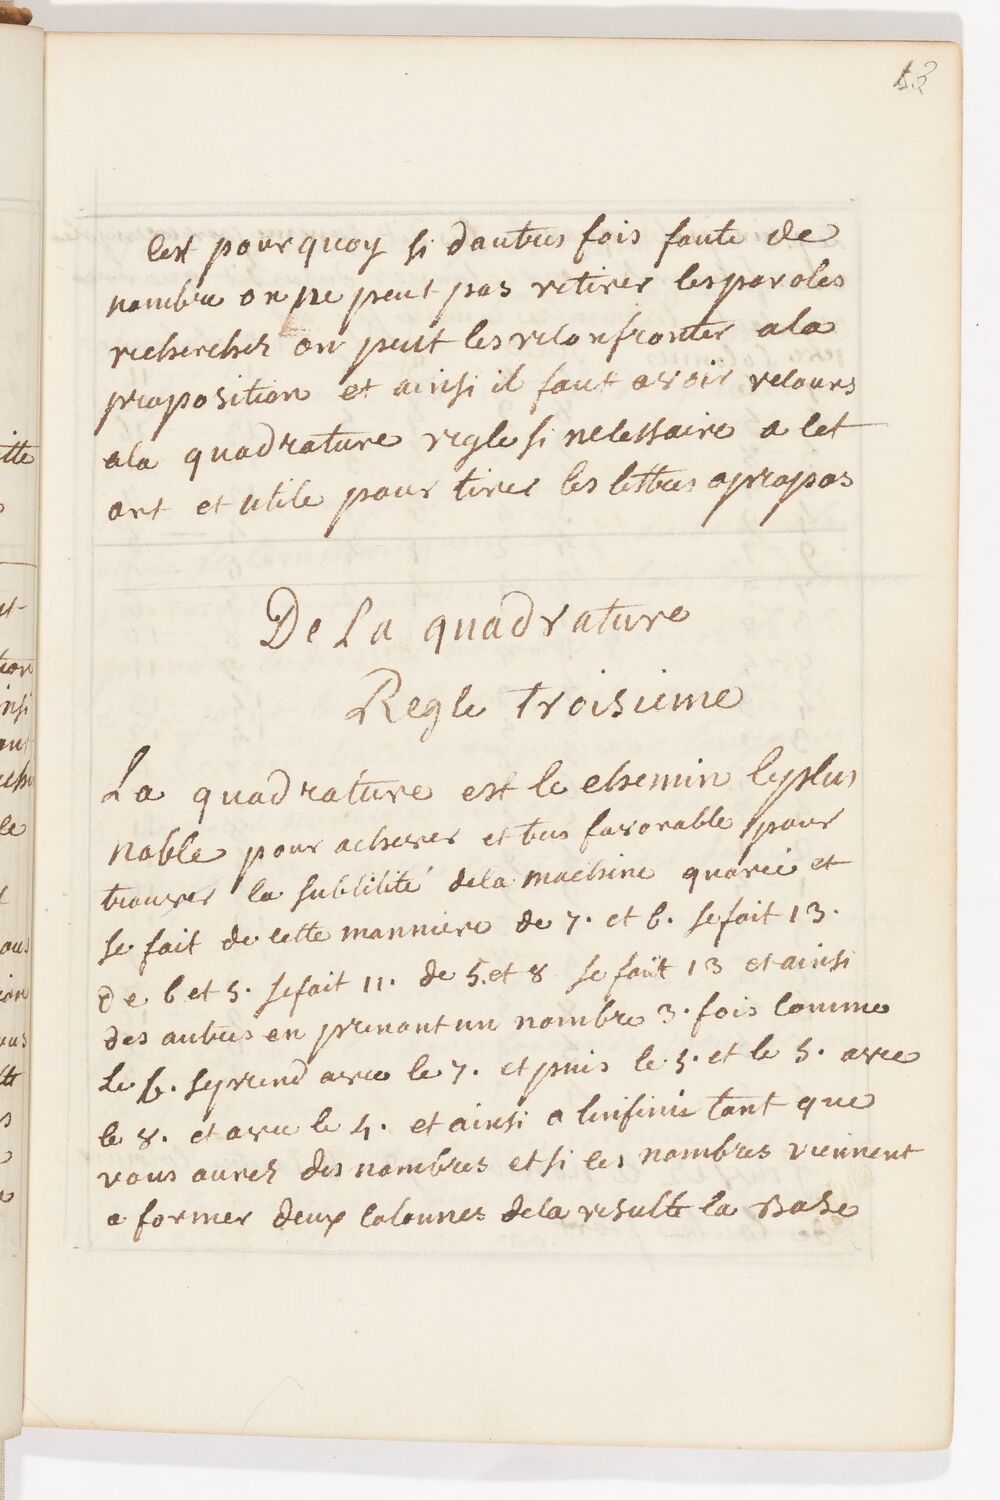 Cest pourquoy si dautres fois faute de
nombre on ne peut pas retirer les paroles
recherchez on peut les reconfronter a la
proposition et ainsi il faut avoir recours
a la quadrature regle si necessaire a cet
art et utile pour tirer les lettres apropos
De La quadrature
Regle troisieme
La quadrature est le chemin le plus
noble pour achever et tres favorable pour
trouver la subtilité dela machine quarée et
se fait de cette manniere de 7. et 6. se fait 13.
de 6 et 5. se fait 11. de 5. et 8 se fait 13 et ainsi
des autres en prenant un nombre 3. fois comme
Le 6. se prend avec le 7. et puis le 5. et le 5. avec
le 8. et avec le 4. et ainsi a linfinie tant que
vous aurez des nombres et si les nombres viennent
a former deux colonnes dela resulte la Base